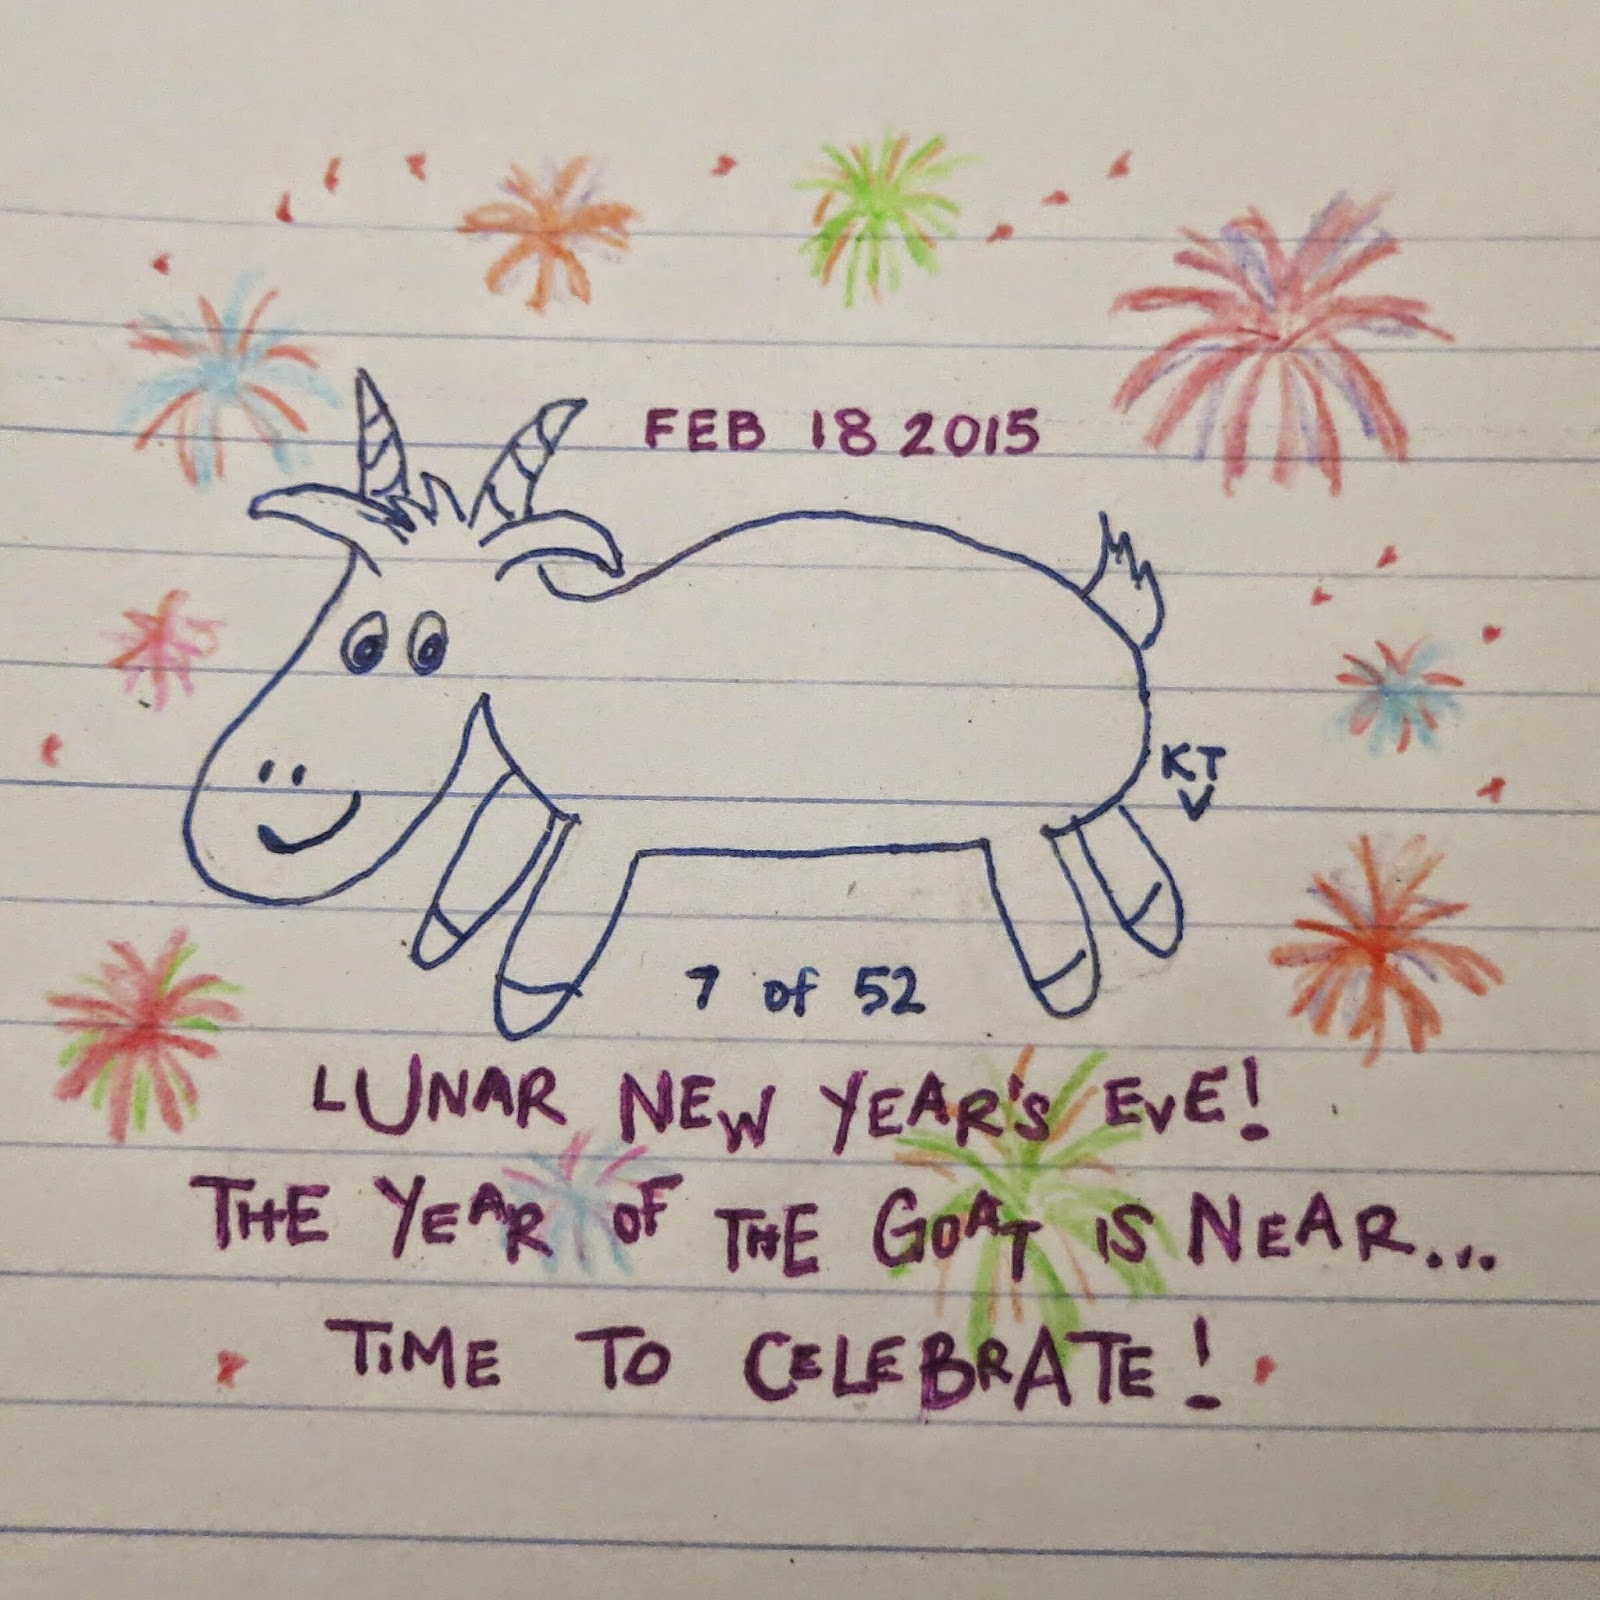 FEB 18 2015
KT
V
7 of 52
LUNAR NEW YEAR'S EVE!
THE YEAR OF THE GOAT IS NEAR...
TIME TO CELEBRATE!